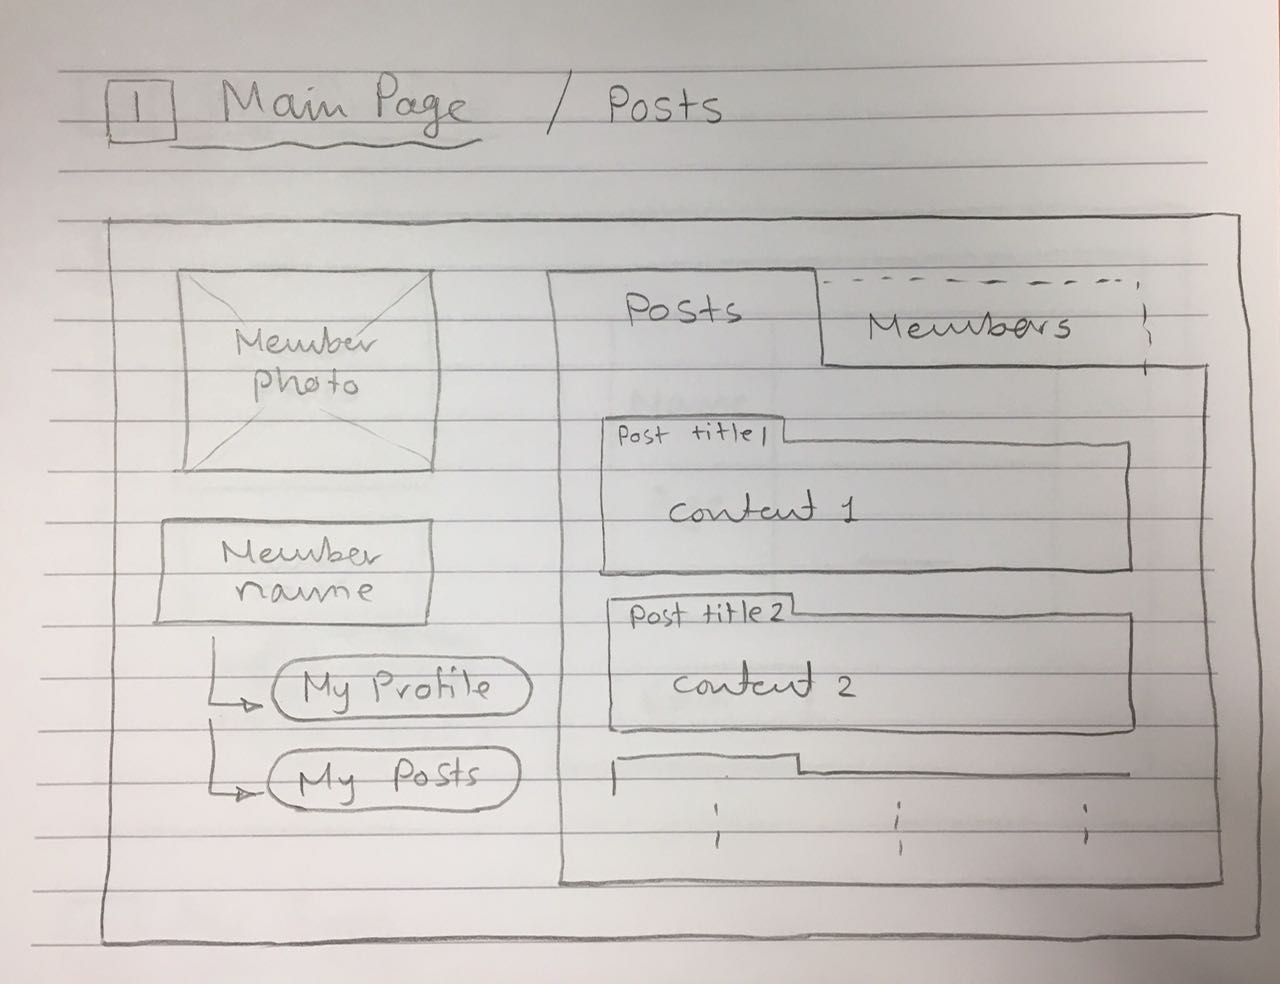 1 Main Page / Posts
Member
photo
Member
name
My Profile
My Posts
Posts
Members
Post title1
content 1
Post title2
content 2